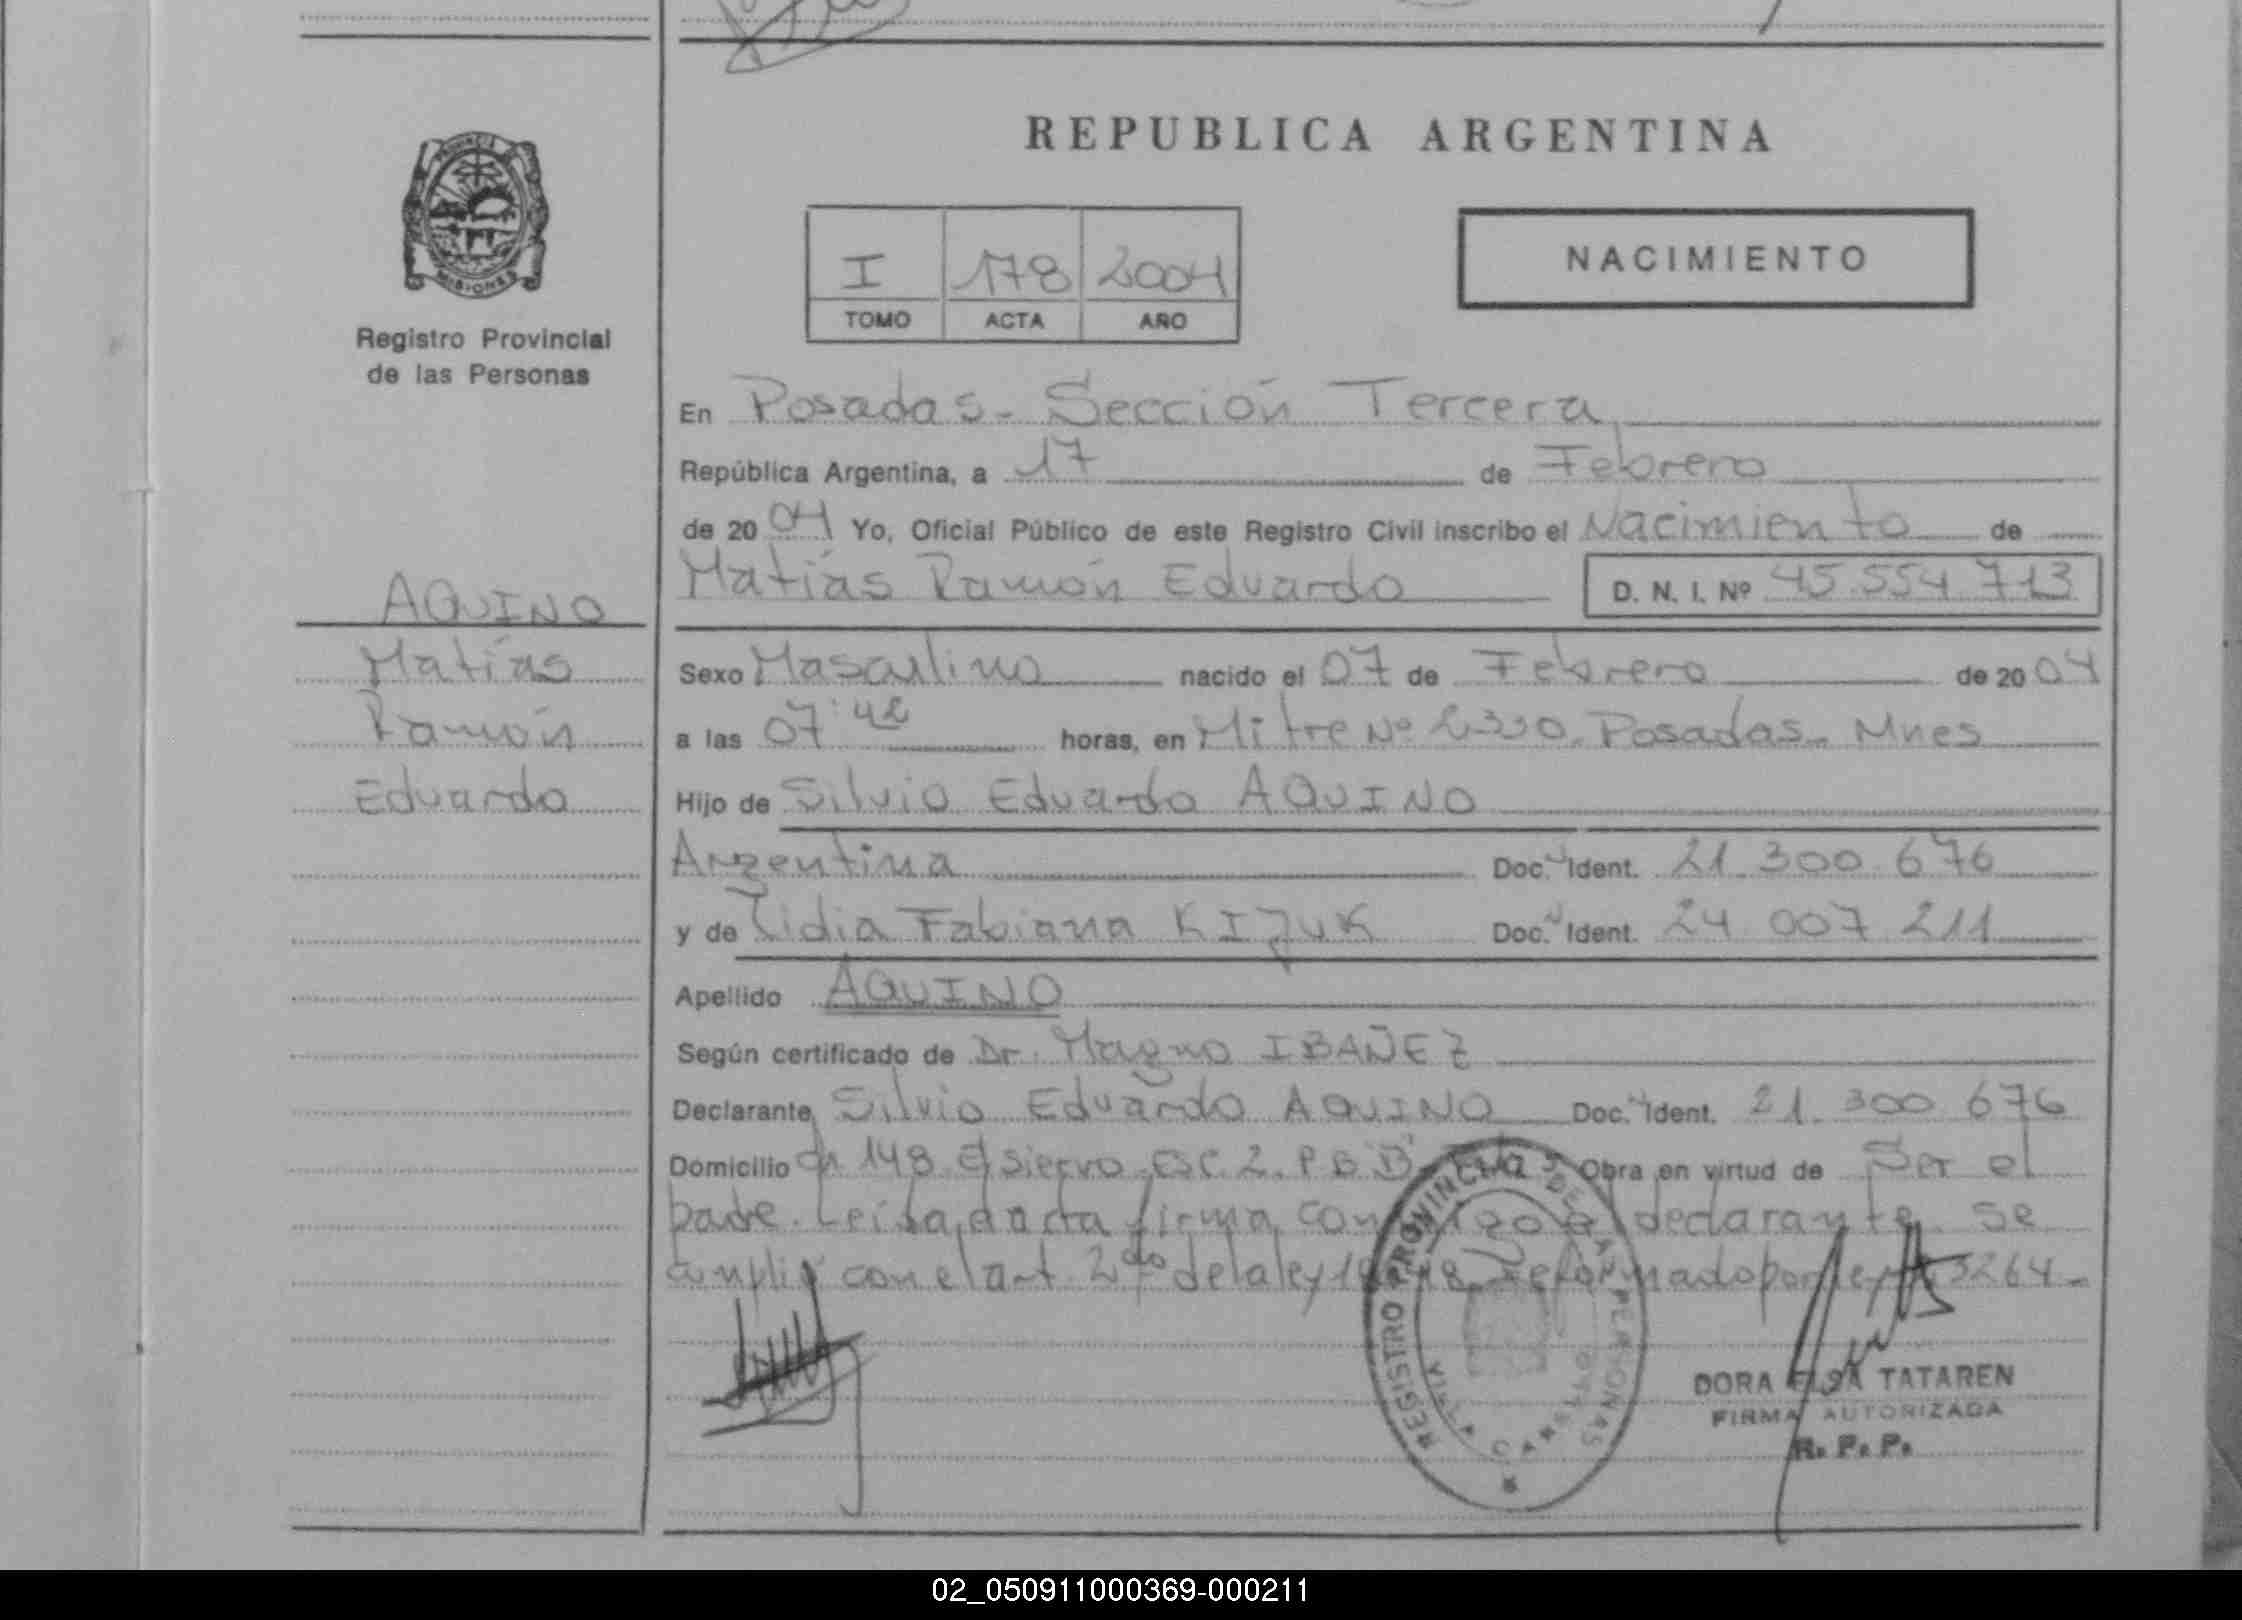 REPUBLICA ARGENTINA
PROVINCIA DE
MISIONES
Registro Provincial
de las Personas
I 178 2004
TOMO ACTA AÑO
NACIMIENTO
En Posadas - Sección Tercera
República Argentina, a 17 de Febrero
de 2004 Yo, Oficial Público de este Registro Civil inscribo el Nacimiento de
Matías Ramón Eduardo D. N. I. Nº 45.554.713
AQUINO
Matías
Ramón
Eduardo
Sexo Masculino nacido el 07 de Febrero de 2004
a las 07:42 horas, en Mitre Nº 2330. Posadas - Mnes
Hijo de Silvio Eduardo AQUINO
Argentina Doc. Ident. 21.300.676
y de Lidia Fabiana KIJUK Doc. Ident. 24.007.211
Apellido AQUINO
Según certificado de Dr. Magno IBAÑEZ
Declarante Silvio Eduardo AQUINO Doc. Ident. 21.300.676
Domicilio Ch 148 Esc. 2. P B "B" Obra en virtud de Ser el
padre. Leída el acta firma conmigo el declarante. Se
cumplió con el art 2do de la ley reformado por ley 23264-
REGISTRO PROVINCIAL DE LAS PERSONAS
VILLA CABELLO
DORA ELSA TATAREN
FIRMA AUTORIZADA
R. P. P.
02_050911000369-000211